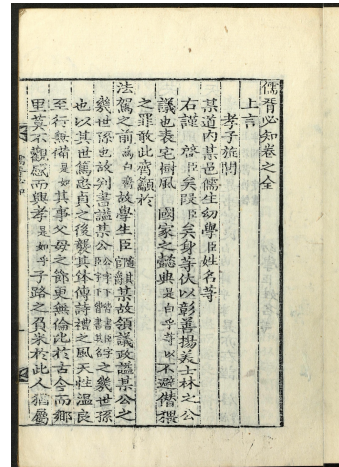 儒胥必知卷之全
上言
孝子旌閭
某道內某邑儒生幼學臣姓名等
右謹啓臣矣段臣矣身等伏以彰善揚美士林之公
議也表宅樹風 國家之懿典是白乎等以不避僭猥
之罪敢此齊籲於
法駕之前爲白齊故學生臣某故領議政謚某公之
幾世孫也故判書謚某公之幾世孫
也以其世篤忠貞之後襲其鉢傳詩禮之風天性溫良
至行無備是如其事父母之節更無倫比於古今而鄉
里莫不觀感而興孝是如乎子路之負米於此人猶屬